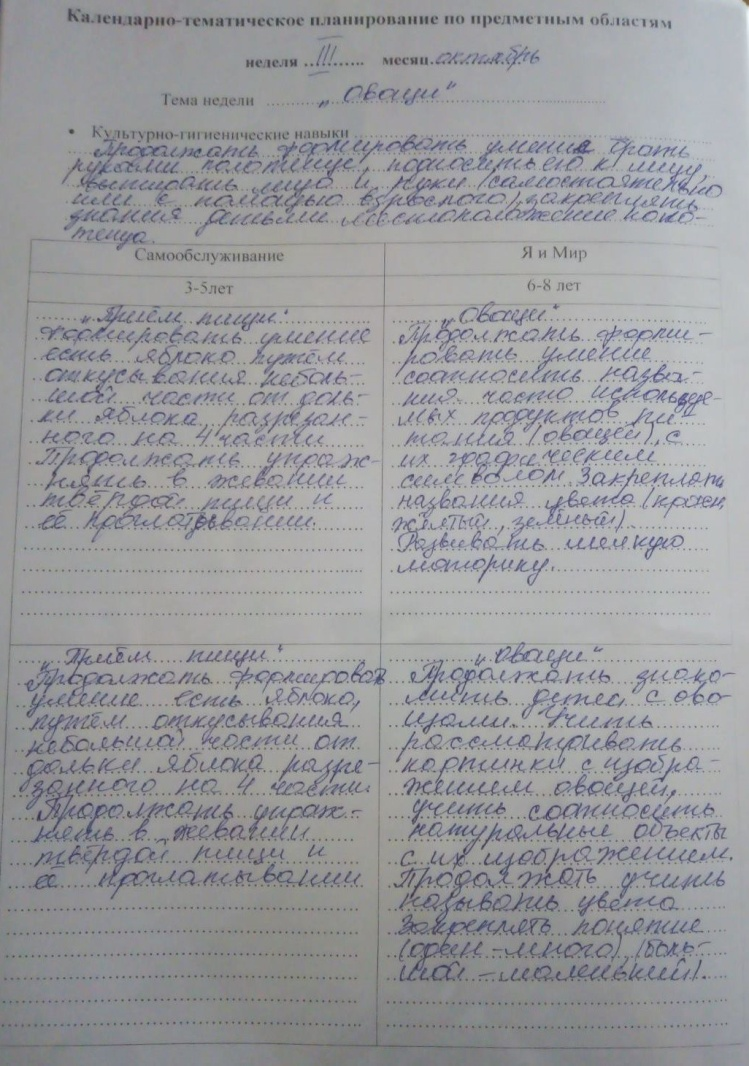 Календарно-тематическое планирование по предметным областям
неделя ..III...... месяц.октябрь
Тема недели „Овощи"
• Культурно-гигиенические навыки
Продолжать формировать умение брать
руками полотенце, подносить его к лицу,
вытирать лицо и руки (самостоятельно
или с помощью взрослого) закреплять
знания детьми местоположение поло-
тенца.
Самообслуживание
3-5лет
„Приём пищи"
Формировать умение
есть яблоко путём
откусывания неболь-
шой части от доль-
ки яблока, разрезан-
ного на 4 части.
Продолжать упраж-
нять в жевании
твёрдой пищи и
её проглатывании.
Я и Мир
6-8 лет
„Овощи"
Продолжать форми-
ровать умение
соотносить назва-
ния часто используе-
мых продуктов пи-
тания (овощей), с
их графическим
символом. Закреплять
названия цвета (красн,
жёлтый, зелёный).
Развивать мелкую
моторику.
„Приём пищи"
Продолжать формироват
умение есть яблоко,
путём откусывания
небольшой части от
дольки яблока разре-
занного на 4 части.
Продолжать упраж-
нять в жевании
твёрдой пищи и
её проглатывании
„Овощи"
Продолжать знако-
мить детей с ово-
щами. Учить
рассматривать
картинки с изобра-
жением овощей,
учить соотносить
натуральные объекты
с их изображением.
Продолжать учить
называть цвета
Закреплять понятие
(один-много) (боль-
шой - маленький).